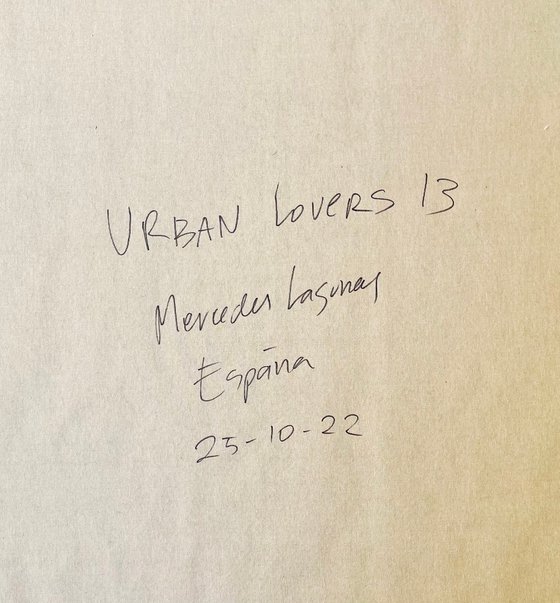 URBAN LOVERS 13
Mercedes Lagunas
España
25-10-22